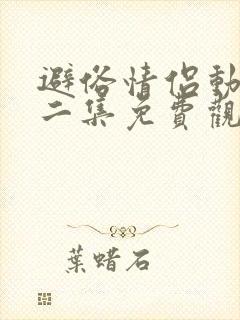 避俗情侶動
二集免費觀
葉蜡石